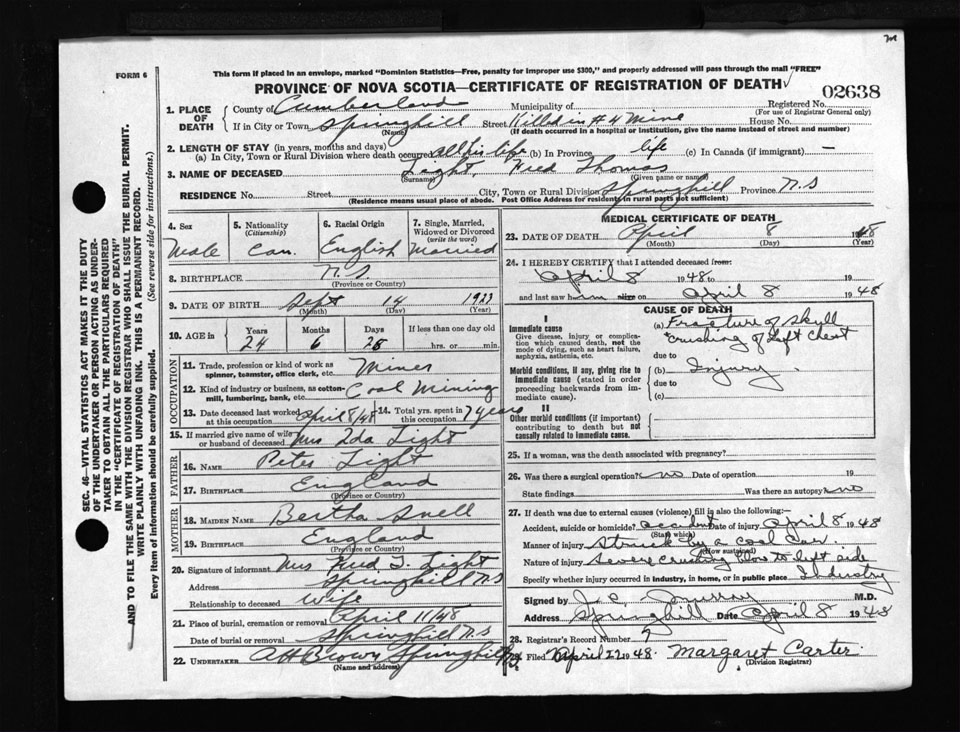 FORM 6
This form if placed in an envelope, marked "Dominion Statistics—Free, penalty for improper use $300," and properly addressed will pass through the mail "FREE"
PROVINCE OF NOVA SCOTIA—CERTIFICATE OF REGISTRATION OF DEATH
02638
1. PLACE OF DEATH
County of Cumberland Municipality of Registered No.
(For use of Registrar General only)
If in City or Town Springhill Street Killed in # 4 Mine House No.
(Name) (If death occurred in a hospital or institution, give the name instead of street and number)
2. LENGTH OF STAY (in years, months and days)
(a) In City, Town or Rural Division where death occurred all his life (b) In Province life (c) In Canada (if immigrant) —
3. NAME OF DECEASED Light, Fred Thomas
(Surname) (Given name or names)
RESIDENCE No. Street City, Town or Rural Division Springhill Province N.S
(Residence means usual place of abode. Post Office Address for residents in rural parts not sufficient)
4. Sex Male
5. Nationality (Citizenship) Can.
6. Racial Origin English
7. Single, Married, Widowed or Divorced (write the word) Married
8. BIRTHPLACE N.S.
(Province or Country)
9. DATE OF BIRTH Sept 14 1923
(Month) (Day) (Year)
10. AGE in Years Months Days If less than one day old
24 6 25 hrs. or min.
OCCUPATION
11. Trade, profession or kind of work as spinner, teamster, office clerk, etc. Miner
12. Kind of industry or business, as cotton-mill, lumbering, bank, etc. Coal Mining
13. Date deceased last worked at this occupation April 8/48 14. Total yrs. spent in this occupation 7 years
15. If married give name of wife or husband of deceased Mrs Ida Light
FATHER
16. NAME Peter Light
17. BIRTHPLACE England
(Province or Country)
MOTHER
18. MAIDEN NAME Bertha Snell
19. BIRTHPLACE England
(Province or Country)
20. Signature of informant Mrs Fred T. Light
Address Springhill N.S
Relationship to deceased Wife
21. Place of burial, cremation or removal April 11/48
Date of burial or removal Springhill N.S
22. UNDERTAKER A H Brown Springhill N.S.
(Name and address)
MEDICAL CERTIFICATE OF DEATH
23. DATE OF DEATH April 8 1948
(Month) (Day) (Year)
24. I HEREBY CERTIFY that I attended deceased from:
April 8 1948 to 19
and last saw him alive on April 8 1948
CAUSE OF DEATH
I
Immediate cause
Give disease, injury or complication which caused death, not the mode of dying, such as heart failure, asphyxia, asthenia, etc.
(a) Fracture of Skull
crushing of left chest
due to
Morbid conditions, if any, giving rise to immediate cause (stated in order proceeding backwards from immediate cause).
(b) Injury.
due to
(c)
II
Other morbid conditions (if important) contributing to death but not causally related to immediate cause.
25. If a woman, was the death associated with pregnancy?
26. Was there a surgical operation? no Date of operation 19
State findings Was there an autopsy no
27. If death was due to external causes (violence) fill in also the following:
Accident, suicide or homicide? accident Date of injury April 8 1948
(State which)
Manner of injury Struck by a coal car.
(How sustained)
Nature of injury Severe crushing blow to left side
Specify whether injury occurred in industry, in home, or in public place Industry
Signed by J. C. Murray M.D.
Address Springhill Date April 8 1948
28. Registrar's Record Number 9
29. Filed April 22 1948. Margaret Carter.
(Division Registrar)
SEC. 46—VITAL STATISTICS ACT MAKES IT THE DUTY
OF THE UNDERTAKER OR PERSON ACTING AS UNDERTAKER
TO OBTAIN ALL THE PARTICULARS REQUIRED
IN THE "CERTIFICATE OF REGISTRATION OF DEATH"
AND TO FILE THE SAME WITH THE DIVISION REGISTRAR WHO SHALL ISSUE THE BURIAL PERMIT.
WRITE PLAINLY WITH UNFADING INK. THIS IS A PERMANENT RECORD.
Every item of information should be carefully supplied. (See reverse side for instructions.)